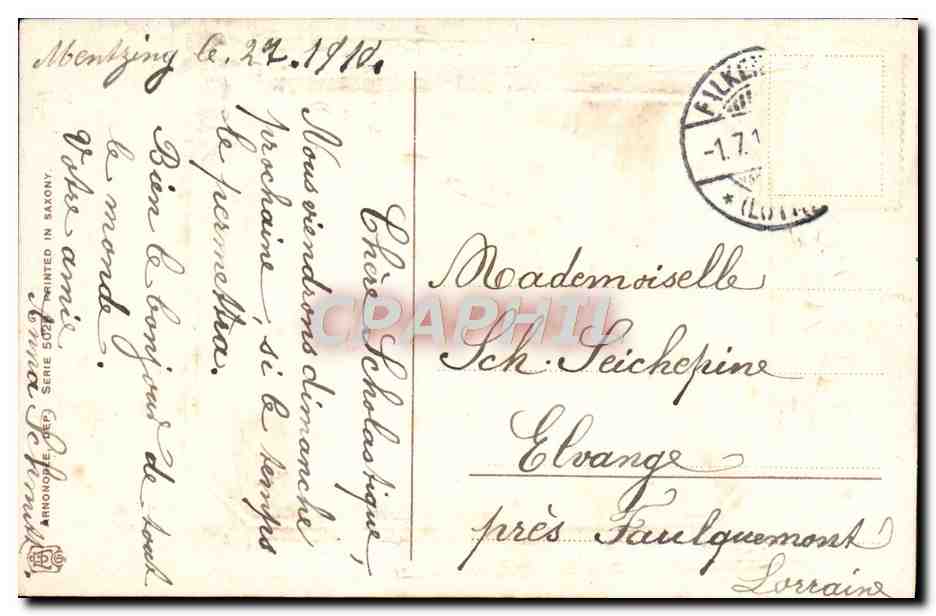 Mentzing le. 27. 1910.
Chère Scholastique,
Nous viendrons dimanche
prochaine, si le temps
le permettra.
Bien le bonjour de tout
le monde.
Votre amie
Anna Schmitt.
Mademoiselle
Sch. Seichepine
Elvange
près Faulquemont
Lorraine
FALKEN
-1.7.1
* (LOTH
SERIE 502 PRINTED IN SAXONY.
CPAPHIL